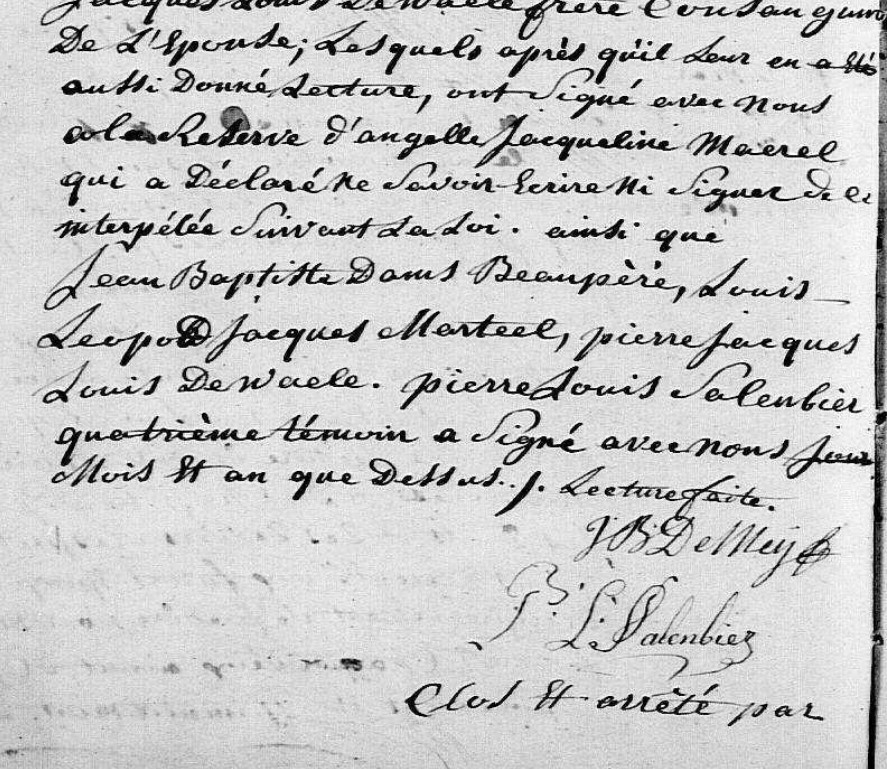 Jacques Louis DeWaele frere Consanguin
De L'Epouse; Lesquels après qu'il Leur en a Eté
aussi Donné Lecture, ont Signé avec nous
a la Reserve d'angelle Jacqueline Maerel
qui a Déclaré Ne Savoir Ecrire Ni Signer de ce
interpélée Suivant La Loi. ainsi que
Jean Baptiste Dams Beaupère, Louis
Leopold Jacques Marteel, pierre Jacques
Louis DeWaele. pierre Louis Salenbier
quatrième témoin a Signé avec nous Jour
Mois Et an que Dessus. /. Lecture faite.
J B DeMey
P. L. Salenbier
Clos Et arrêté par